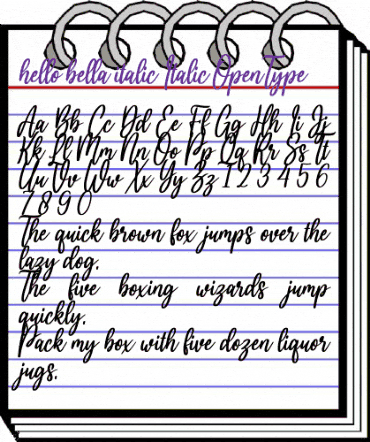 hello bella italic Italic OpenType
Aa Bb Cc Dd Ee Ff Gg Hh Ii Jj
Kk Ll Mm Nn Oo Pp Qq Rr Ss Tt
Uu Vv Ww Xx Yy Zz 1 2 3 4 5 6
7 8 9 0
The quick brown fox jumps over the
lazy dog.
The five boxing wizards jump
quickly.
Pack my box with five dozen liquor
jugs.